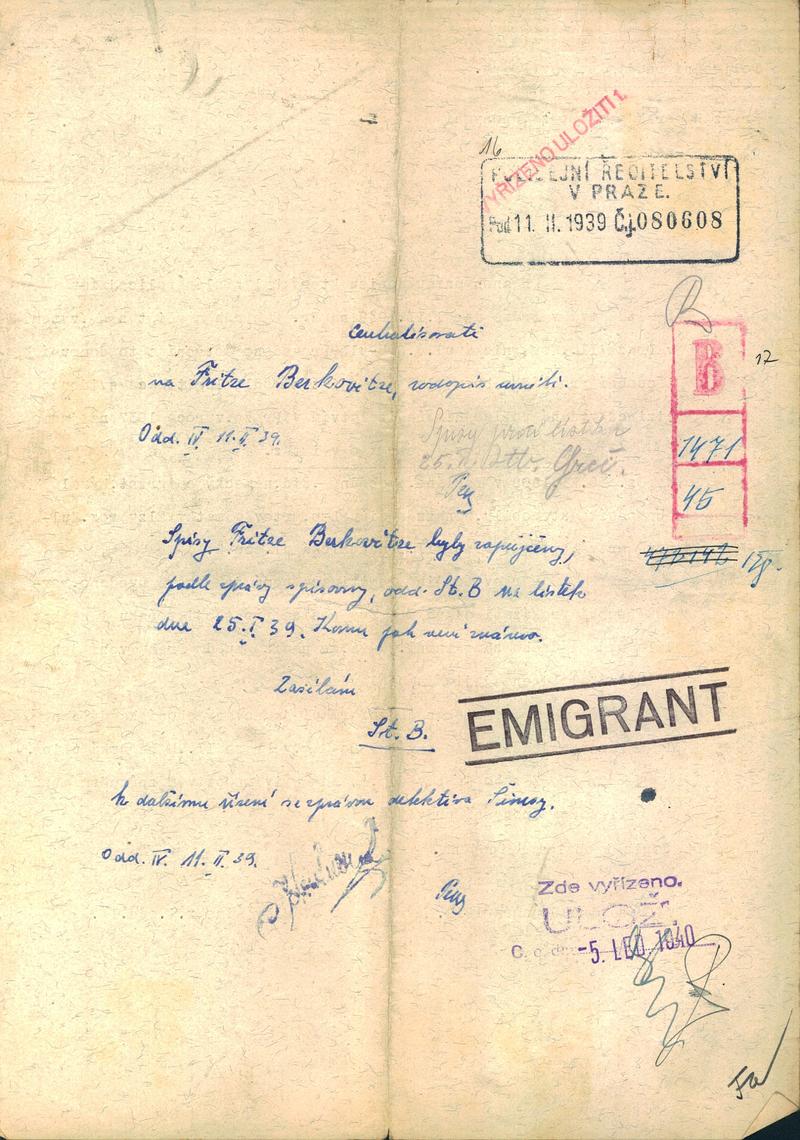 VYŘÍZENO ULOŽITI 1.
16
POLICEJNÍ ŘEDITELSTVÍ
V PRAZE.
Pod 11. II. 1939 Čj. 080608
B
B
17
1471
45
centralisovati
na Fritze Berkovitze, rodopis
Odd. IV 11. II. 39.
Spisy
25.I.
Spisy Fritze Berkovitze byly zapůjčeny,
podle zprávy spisovny, odd. St. B na lístek
dne 25.I.39. Komu jak není známo.
Zasílám
St. B.
EMIGRANT
k dalšímu řízení se zprávou detektiva
Odd. IV. 11. II. 39.
Zde vyřízeno.
ULOŽ
-5. LED. 1940